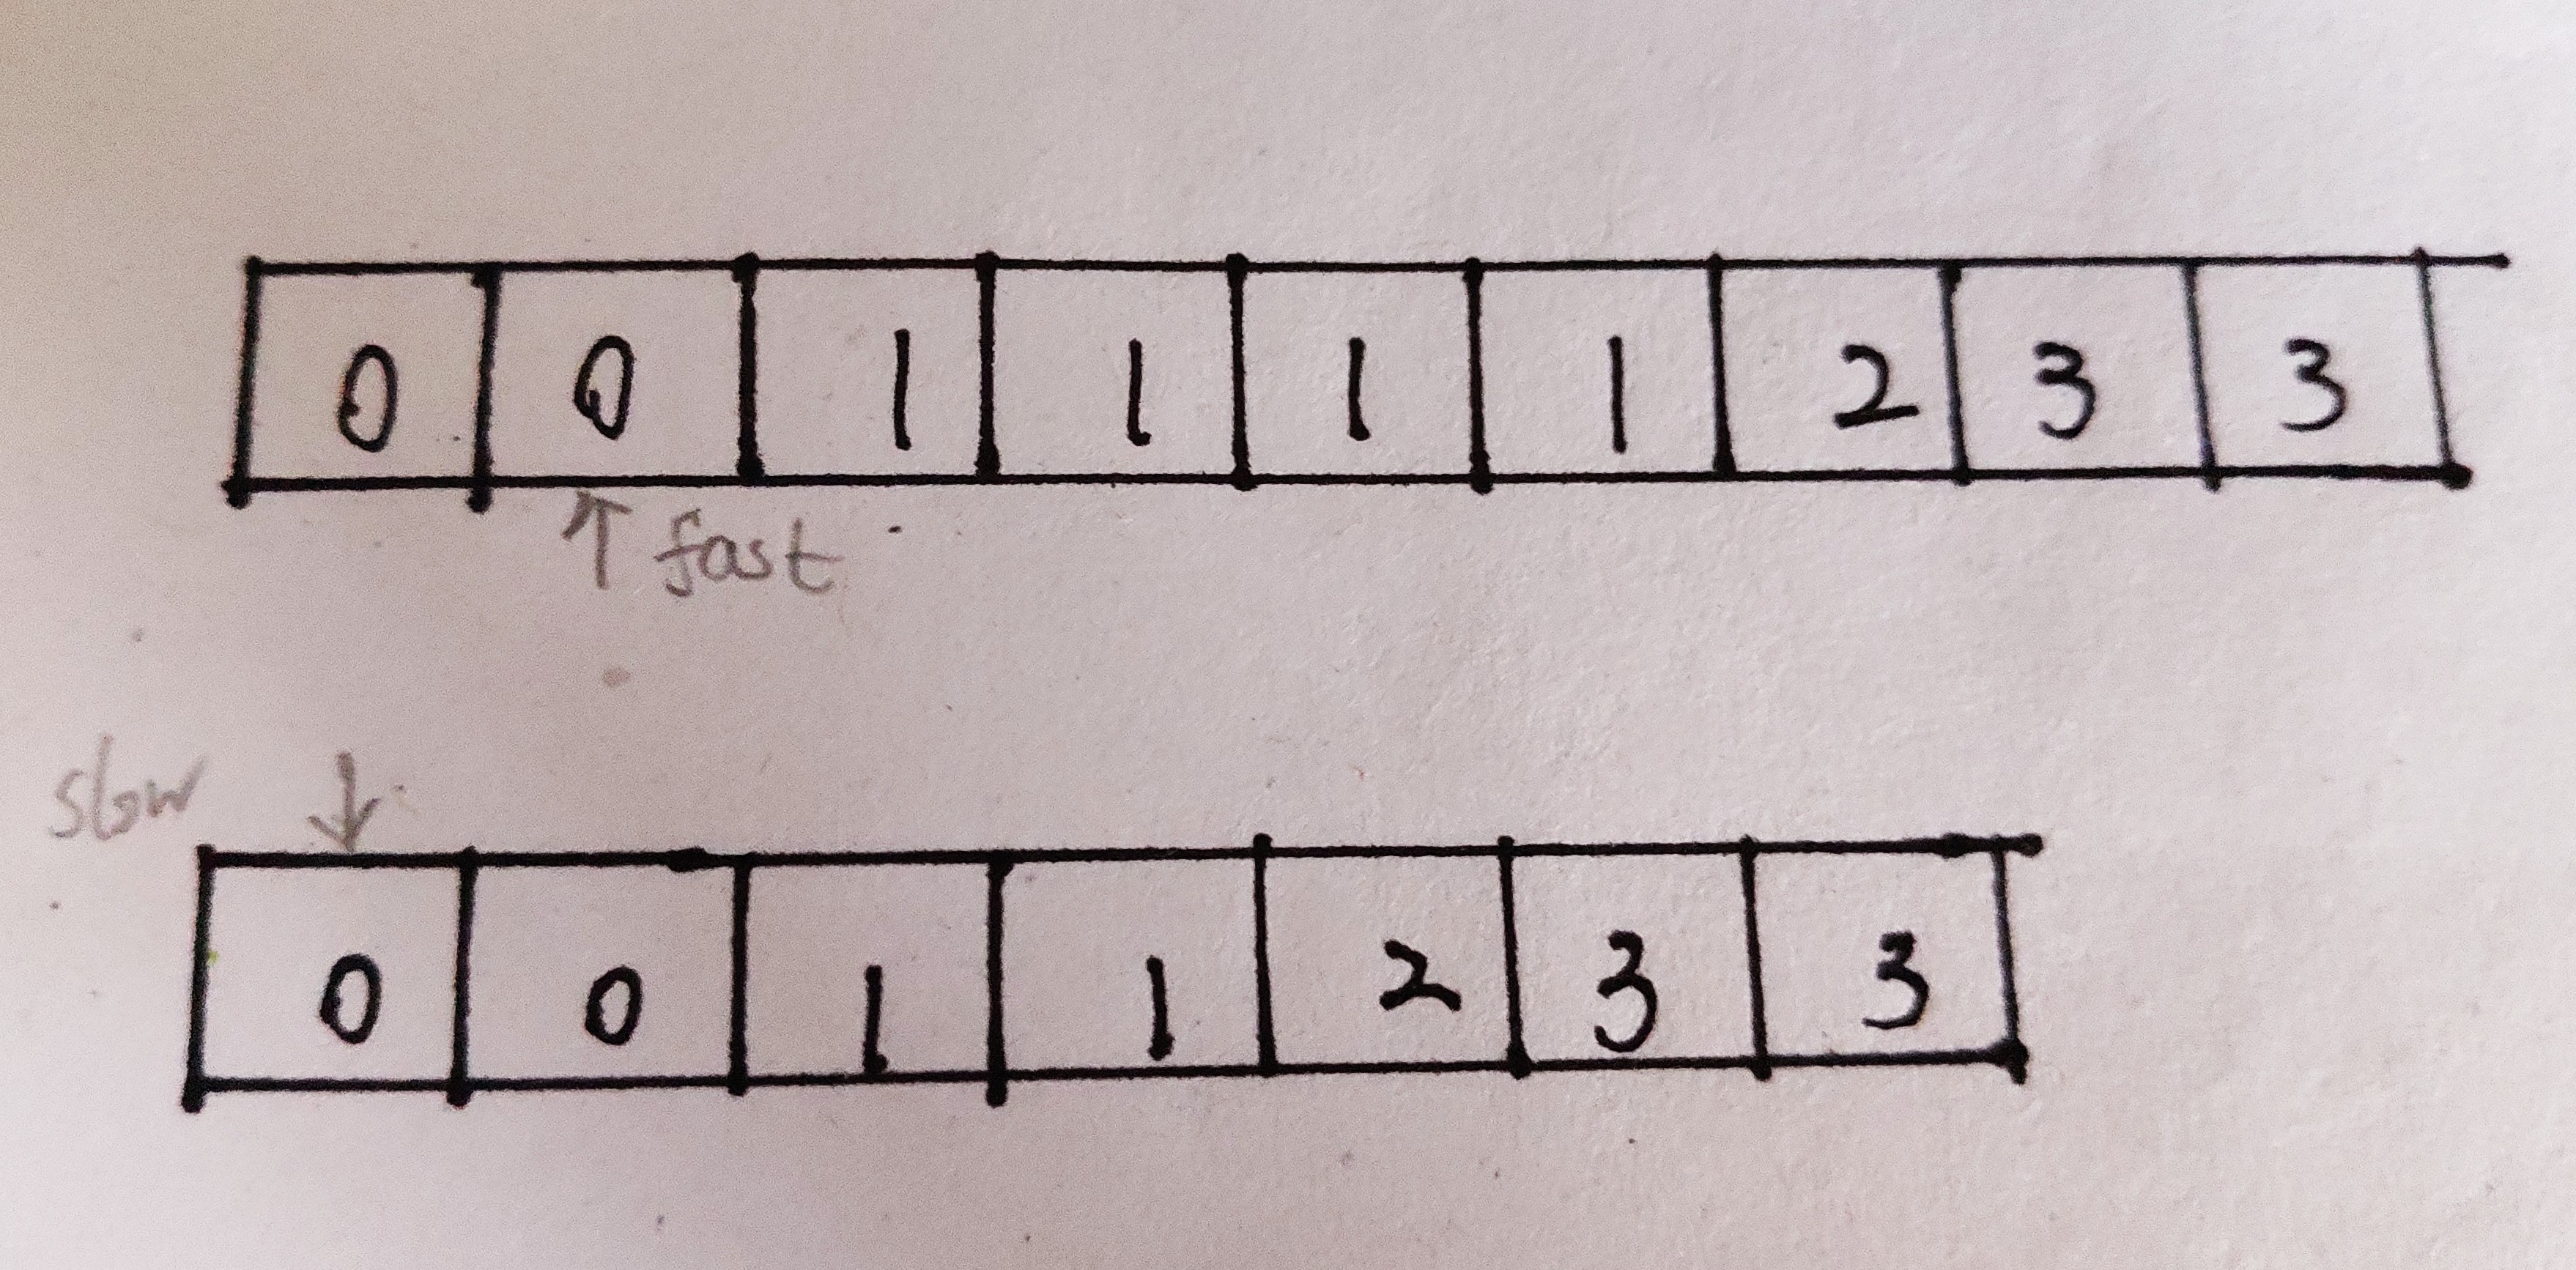 0 0 1 1 1 1 2 3 3
fast
slow
0 0 1 1 2 3 3